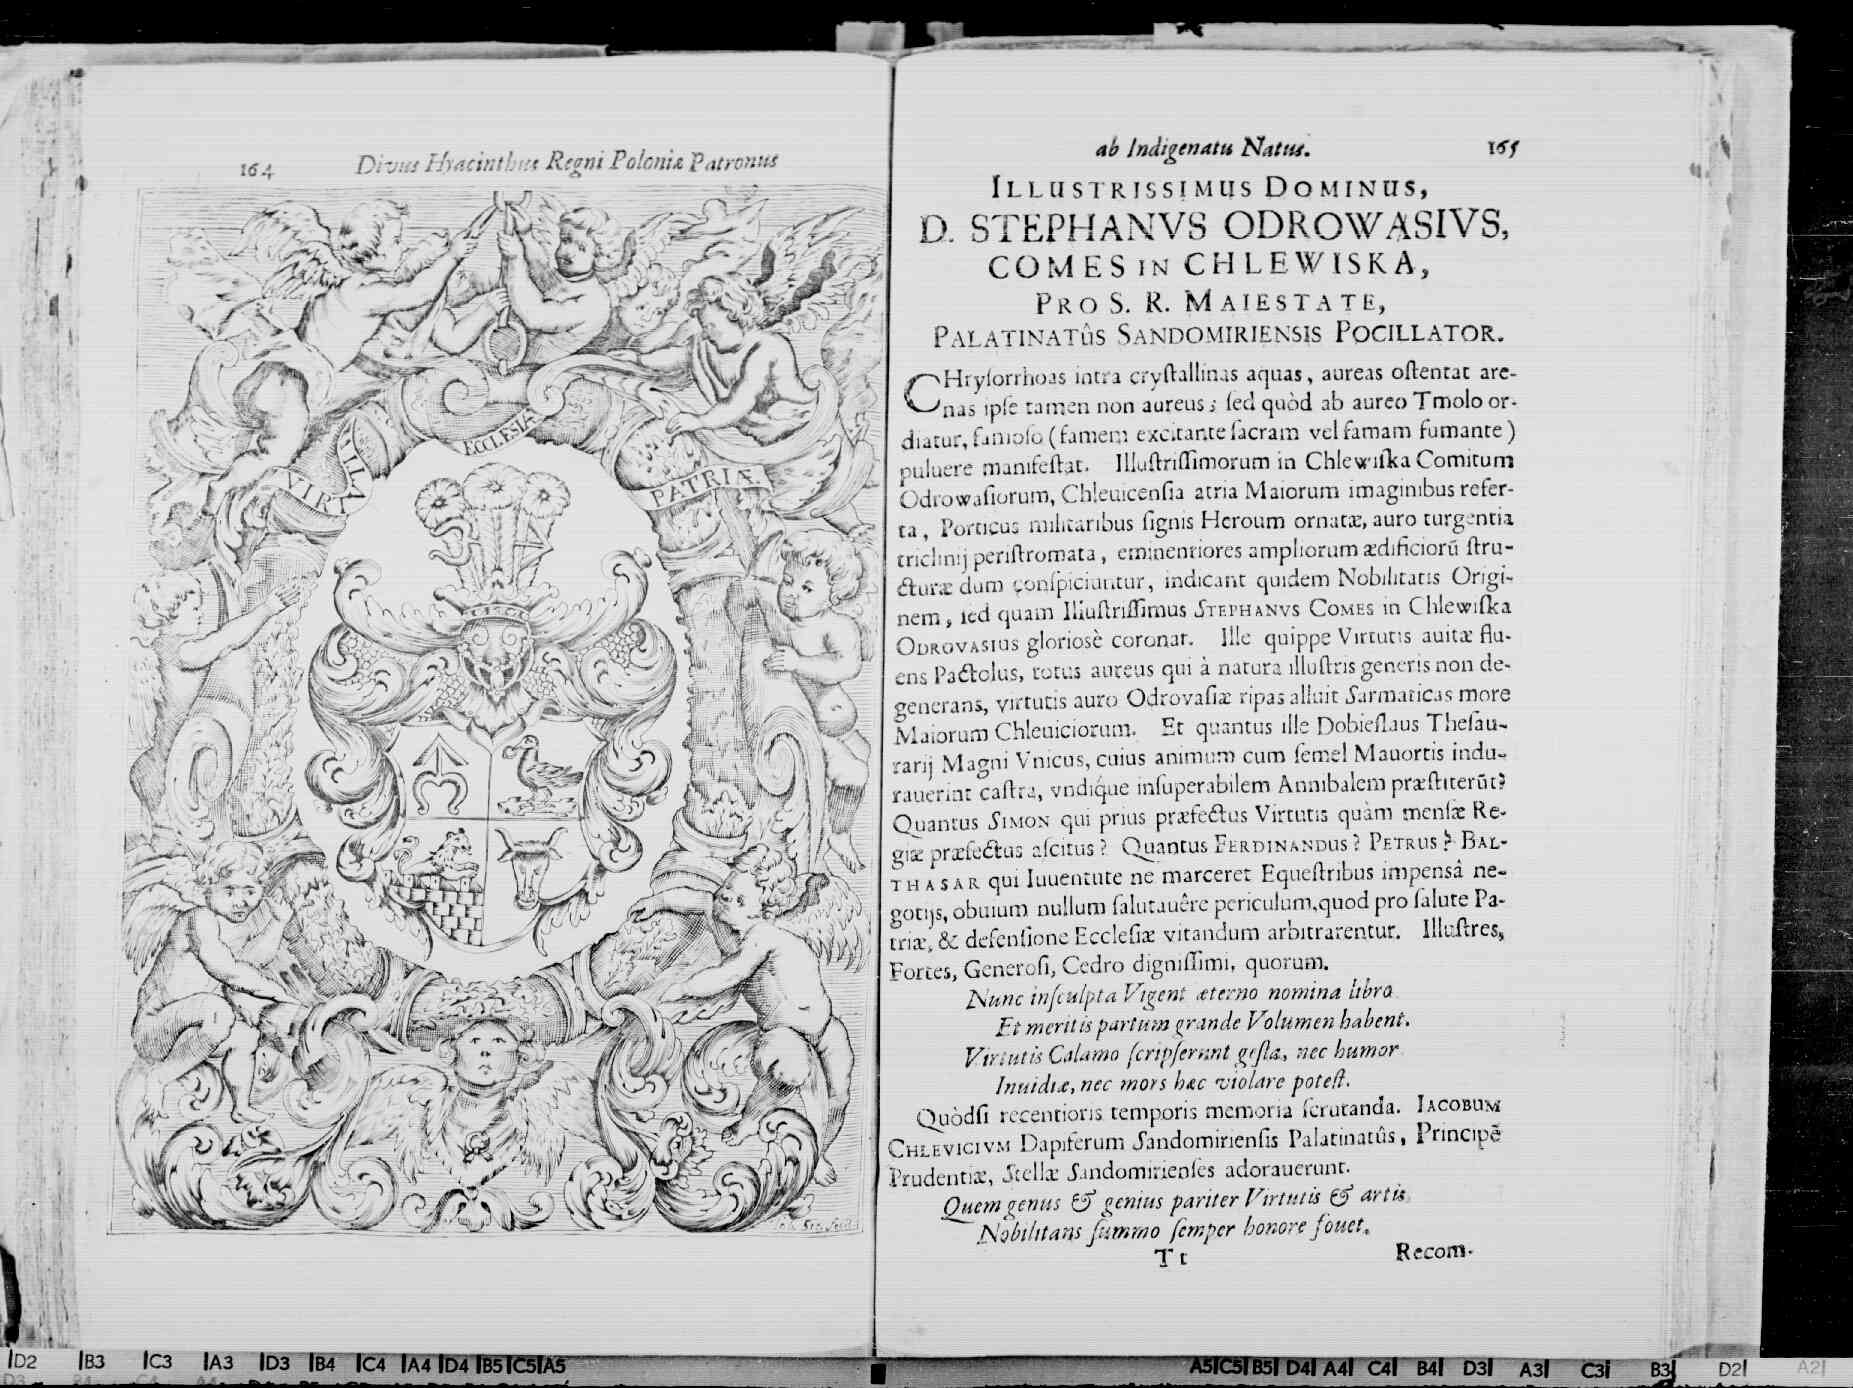 164 Divus Hyacinthus Regni Poloniæ Patronus
ECCLESIÆ
TILÆ
VIRT
PATRIÆ.
ab Indigenatu Natus. 165
ILLUSTRISSIMUS DOMINUS,
D. STEPHANVS ODROWASIVS,
COMES IN CHLEWISKA,
PRO S. R. MAIESTATE,
PALATINATûS SANDOMIRIENSIS POCILLATOR.
CHryſorrhoas intra cryſtallinas aquas, aureas oſtentat are-
nas ipſe tamen non aureus; ſed quòd ab aureo Tmolo or-
diatur, famoſo (famem excitante ſacram vel famam fumante)
puluere manifeſtat. Illuſtriſſimorum in Chlewiſka Comitum
Odrowaſiorum, Chleuicenſia atria Maiorum imaginibus refer-
ta, Porticus militaribus ſignis Heroum ornatæ, auro turgentia
triclinij periſtromata, eminentiores ampliorum ædificiorū ſtru-
cturæ dum conſpiciuntur, indicant quidem Nobilitatis Origi-
nem, ſed quam Illuſtriſſimus STEPHANVS COMES in Chlewiſka
ODROVASIUS glorioſè coronat. Ille quippe Virtutis auitæ flu-
ens Pactolus, totus aureus qui à natura illuſtris generis non de-
generans, virtutis auro Odrovaſiæ ripas alluit Sarmaticas more
Maiorum Chleuiciorum. Et quantus ille Dobieſlaus Theſau-
rarij Magni Vnicus, cuius animum cum ſemel Mauortis indu-
rauerint caſtra, vndiq́ue inſuperabilem Annibalem præſtiterūt?
Quantus SIMON qui prius præfectus Virtutis quàm menſæ Re-
giæ præfectus aſcitus? Quantus FERDINANDUS? PETRUS? BAL-
THASAR qui Iuuentute ne marceret Equeſtribus impensâ ne-
gotijs, obuium nullum ſalutauêre periculum, quod pro ſalute Pa-
triæ, & defenſione Eccleſiæ vitandum arbitrarentur. Illuſtres,
Fortes, Generoſi, Cedro digniſſimi, quorum.
Nunc inſculpta Vigent æterno nomina libro
Et meritis partum grande Volumen habent.
Virtutis Calamo ſcripſerunt geſta, nec humor
Inuidiæ, nec mors hæc violare poteſt.
Quòdſi recentioris temporis memoria ſcrutanda. IACOBUM
CHLEVICIVM Dapiferum Sandomirienſis Palatinatûs, Principē
Prudentiæ, Stellæ Sandomirienſes adorauerunt.
Quem genus & genius pariter Virtutis & artis
Nobilitans ſummo ſemper honore fouet.
Tt Recom-
D2 B3 C3 A3 D3 B4 C4 A4 D4 B5 C5 A5
A5 C5 B5 D4 A4 C4 B4 D3 A3 C3 B3 D2 A2